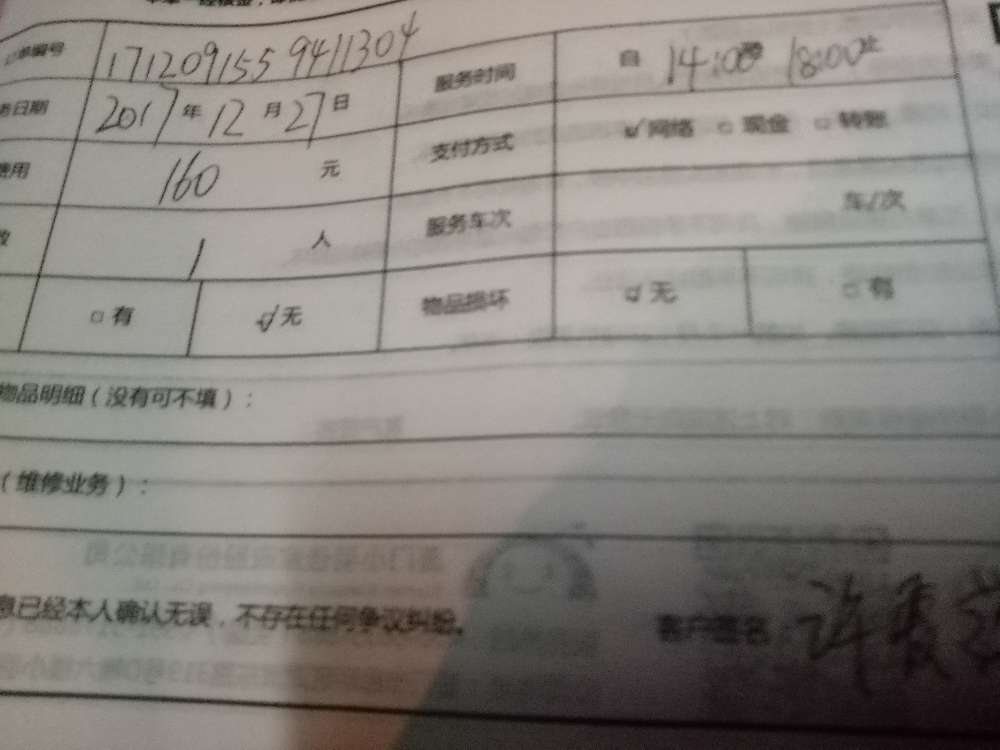 单编号 1712091559411304 服务时间 自 14:00 18:00止
务日期 2017年12月27日
费用 160 元 支付方式 ☑网络 □现金 □转账
数 1 人 服务车次 车/次
□有 ☑无 物品损坏 ☑无 □有
物品明细（没有可不填）：
（维修业务）：
息已经本人确认无误，不存在任何争议纠纷。 客户签名：许